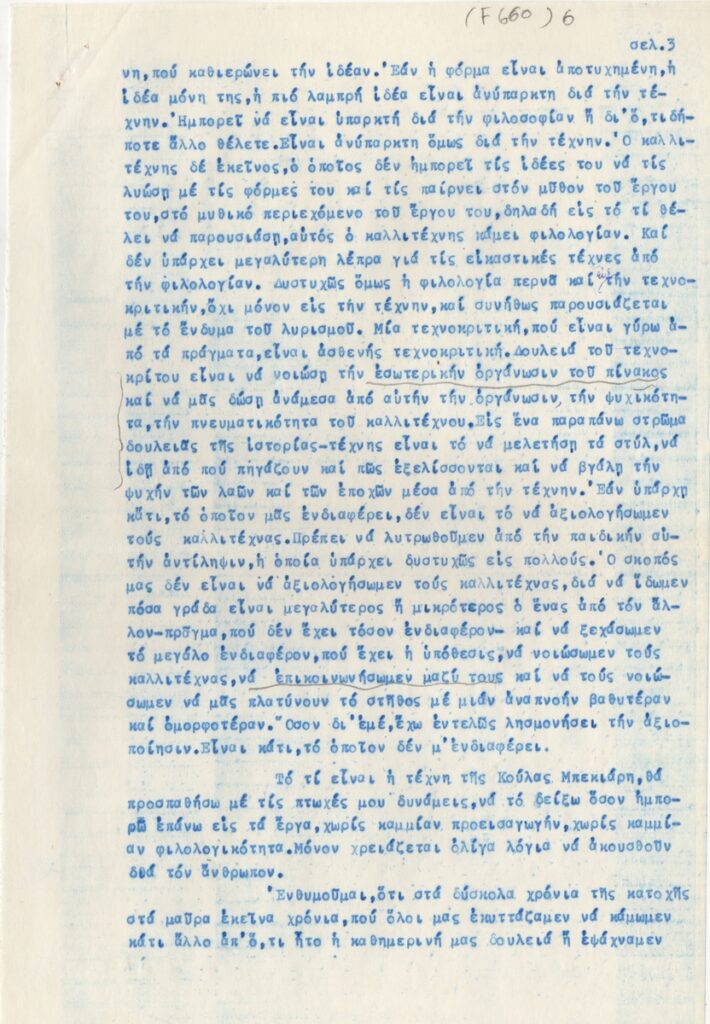 (F660) 6
σελ.3
νη,πού καθιερώνει τήν ἰδέαν. Ἐάν ἡ φόρμα εἶναι ἀποτυχημένη,ἡ
ἰδέα μόνη της,ἡ πιό λαμπρή ἰδέα εἶναι ἀνύπαρκτη διά τήν τέ-
χνην. Ἠμπορεῖ νά εἶναι ὑπαρκτή διά τήν φιλοσοφίαν ἤ δι'ὅ,τιδή-
ποτε ἄλλο θέλετε.Εἶναι ἀνύπαρκτη ὅμως διά τήν τέχνην. Ὁ καλλι-
τέχνης δέ ἐκεῖνος,ὁ ὁποῖος δέν ἠμπορεῖ τίς ἰδέες του νά τίς
λυώσῃ μέ τίς φόρμες του καί τίς παίρνει στόν μῦθον τοῦ ἔργου
του,στό μυθικό περιεχόμενο τοῦ ἔργου του,δηλαδή εἰς τό τί θέ-
λει νά παρουσιάσῃ,αὐτός ὁ καλλιτέχνης κάμει φιλολογίαν. Καί
δέν ὑπάρχει μεγαλύτερη λέπρα γιά τίς εἰκαστικές τέχνες ἀπό
τήν φιλολογίαν. Δυστυχῶς ὅμως ἡ φιλολογία περνᾶ καί τήν τεχνο-
κριτικήν,ὄχι μόνον εἰς τήν τέχνην,καί συνήθως παρουσιάζεται
μέ τό ἔνδυμα τοῦ λυρισμοῦ. Μία τεχνοκριτική,πού εἶναι γύρω ἀ-
πό τά πράγματα,εἶναι ἀσθενής τεχνοκριτική.Δουλειά τοῦ τεχνο-
κρίτου εἶναι νά νοιώσῃ τήν ἐσωτερικήν ὀργάνωσιν τοῦ πίνακος
καί νά μᾶς δώσῃ ἀνάμεσα ἀπό αὐτήν τήν ὀργάνωσιν,τήν ψυχικότη-
τα,τήν πνευματικότητα τοῦ καλλιτέχνου.Εἰς ἕνα παραπάνω στρῶμα
δουλειᾶς τῆς ἱστορίας-τέχνης εἶναι τό νά μελετήσῃ τά στύλ,νά
ἰδῇ ἀπό ποῦ πηγάζουν καί πῶς ἐξελίσσονται καί νά βγάλῃ τήν
ψυχήν τῶν λαῶν καί τῶν ἐποχῶν μέσα ἀπό τήν τέχνην. Ἐάν ὑπάρχῃ
κἄτι,τό ὁποῖον μᾶς ἐνδιαφέρει,δέν εἶναι τό νά ἀξιολογήσωμεν
τούς καλλιτέχνας.Πρέπει νά λυτρωθοῦμεν ἀπό τήν παιδικήν αὐ-
τήν ἀντίληψιν,ἡ ὁποία ὑπάρχει δυστυχῶς εἰς πολλούς. Ὁ σκοπός
μας δέν εἶναι νά ἀξιολογήσωμεν τούς καλλιτέχνας,διά νά ἴδωμεν
πόσα γράδα εἶναι μεγαλύτερος ἤ μικρότερος ὁ ἕνας ἀπό τόν ἄλ-
λον-πρᾶγμα,πού δέν ἔχει τόσον ἐνδιαφέρον- καί νά ξεχάσωμεν
τό μεγάλο ἐνδιαφέρον,πού ἔχει ἡ ὑπόθεσις,νά νοιώσωμεν τούς
καλλιτέχνας,νά ἐπικοινωνήσωμεν μαζύ τους καί νά τούς νοιώ-
σωμεν νά μᾶς πλατύνουν τό στῆθος μέ μιάν ἀναπνοήν βαθυτέραν
καί ὀμορφοτέραν. Ὅσον δι'ἐμέ,ἔχω ἐντελῶς λησμονήσει τήν ἀξιο-
ποίησιν.Εἶναι κάτι,τό ὁποῖον δέν μ'ἐνδιαφέρει.
Τό τί εἶναι ἡ τέχνη τῆς Κούλας Μπεκιάρη,θά
προσπαθήσω μέ τίς πτωχές μου δυνάμεις,νά τό δείξω ὅσον ἠμπο-
ρῶ ἐπάνω εἰς τά ἔργα,χωρίς καμμίαν προεισαγωγήν,χωρίς καμμί-
αν φιλολογικότητα.Μόνον χρειάζεται ὀλίγα λόγια νά ἀκουσθοῦν
διά τόν ἄνθρωπον.
Ἐνθυμοῦμαι,ὅτι στά δύσκολα χρόνια τῆς κατοχῆς
στά μαῦρα ἐκεῖνα χρόνια,πού ὅλοι μας ἐκυττάζαμεν νά κάμωμεν
κάτι ἄλλο ἀπ'ὅ,τι ἦτο ἡ καθημερινή μας δουλειά ἤ ἐψάχναμεν